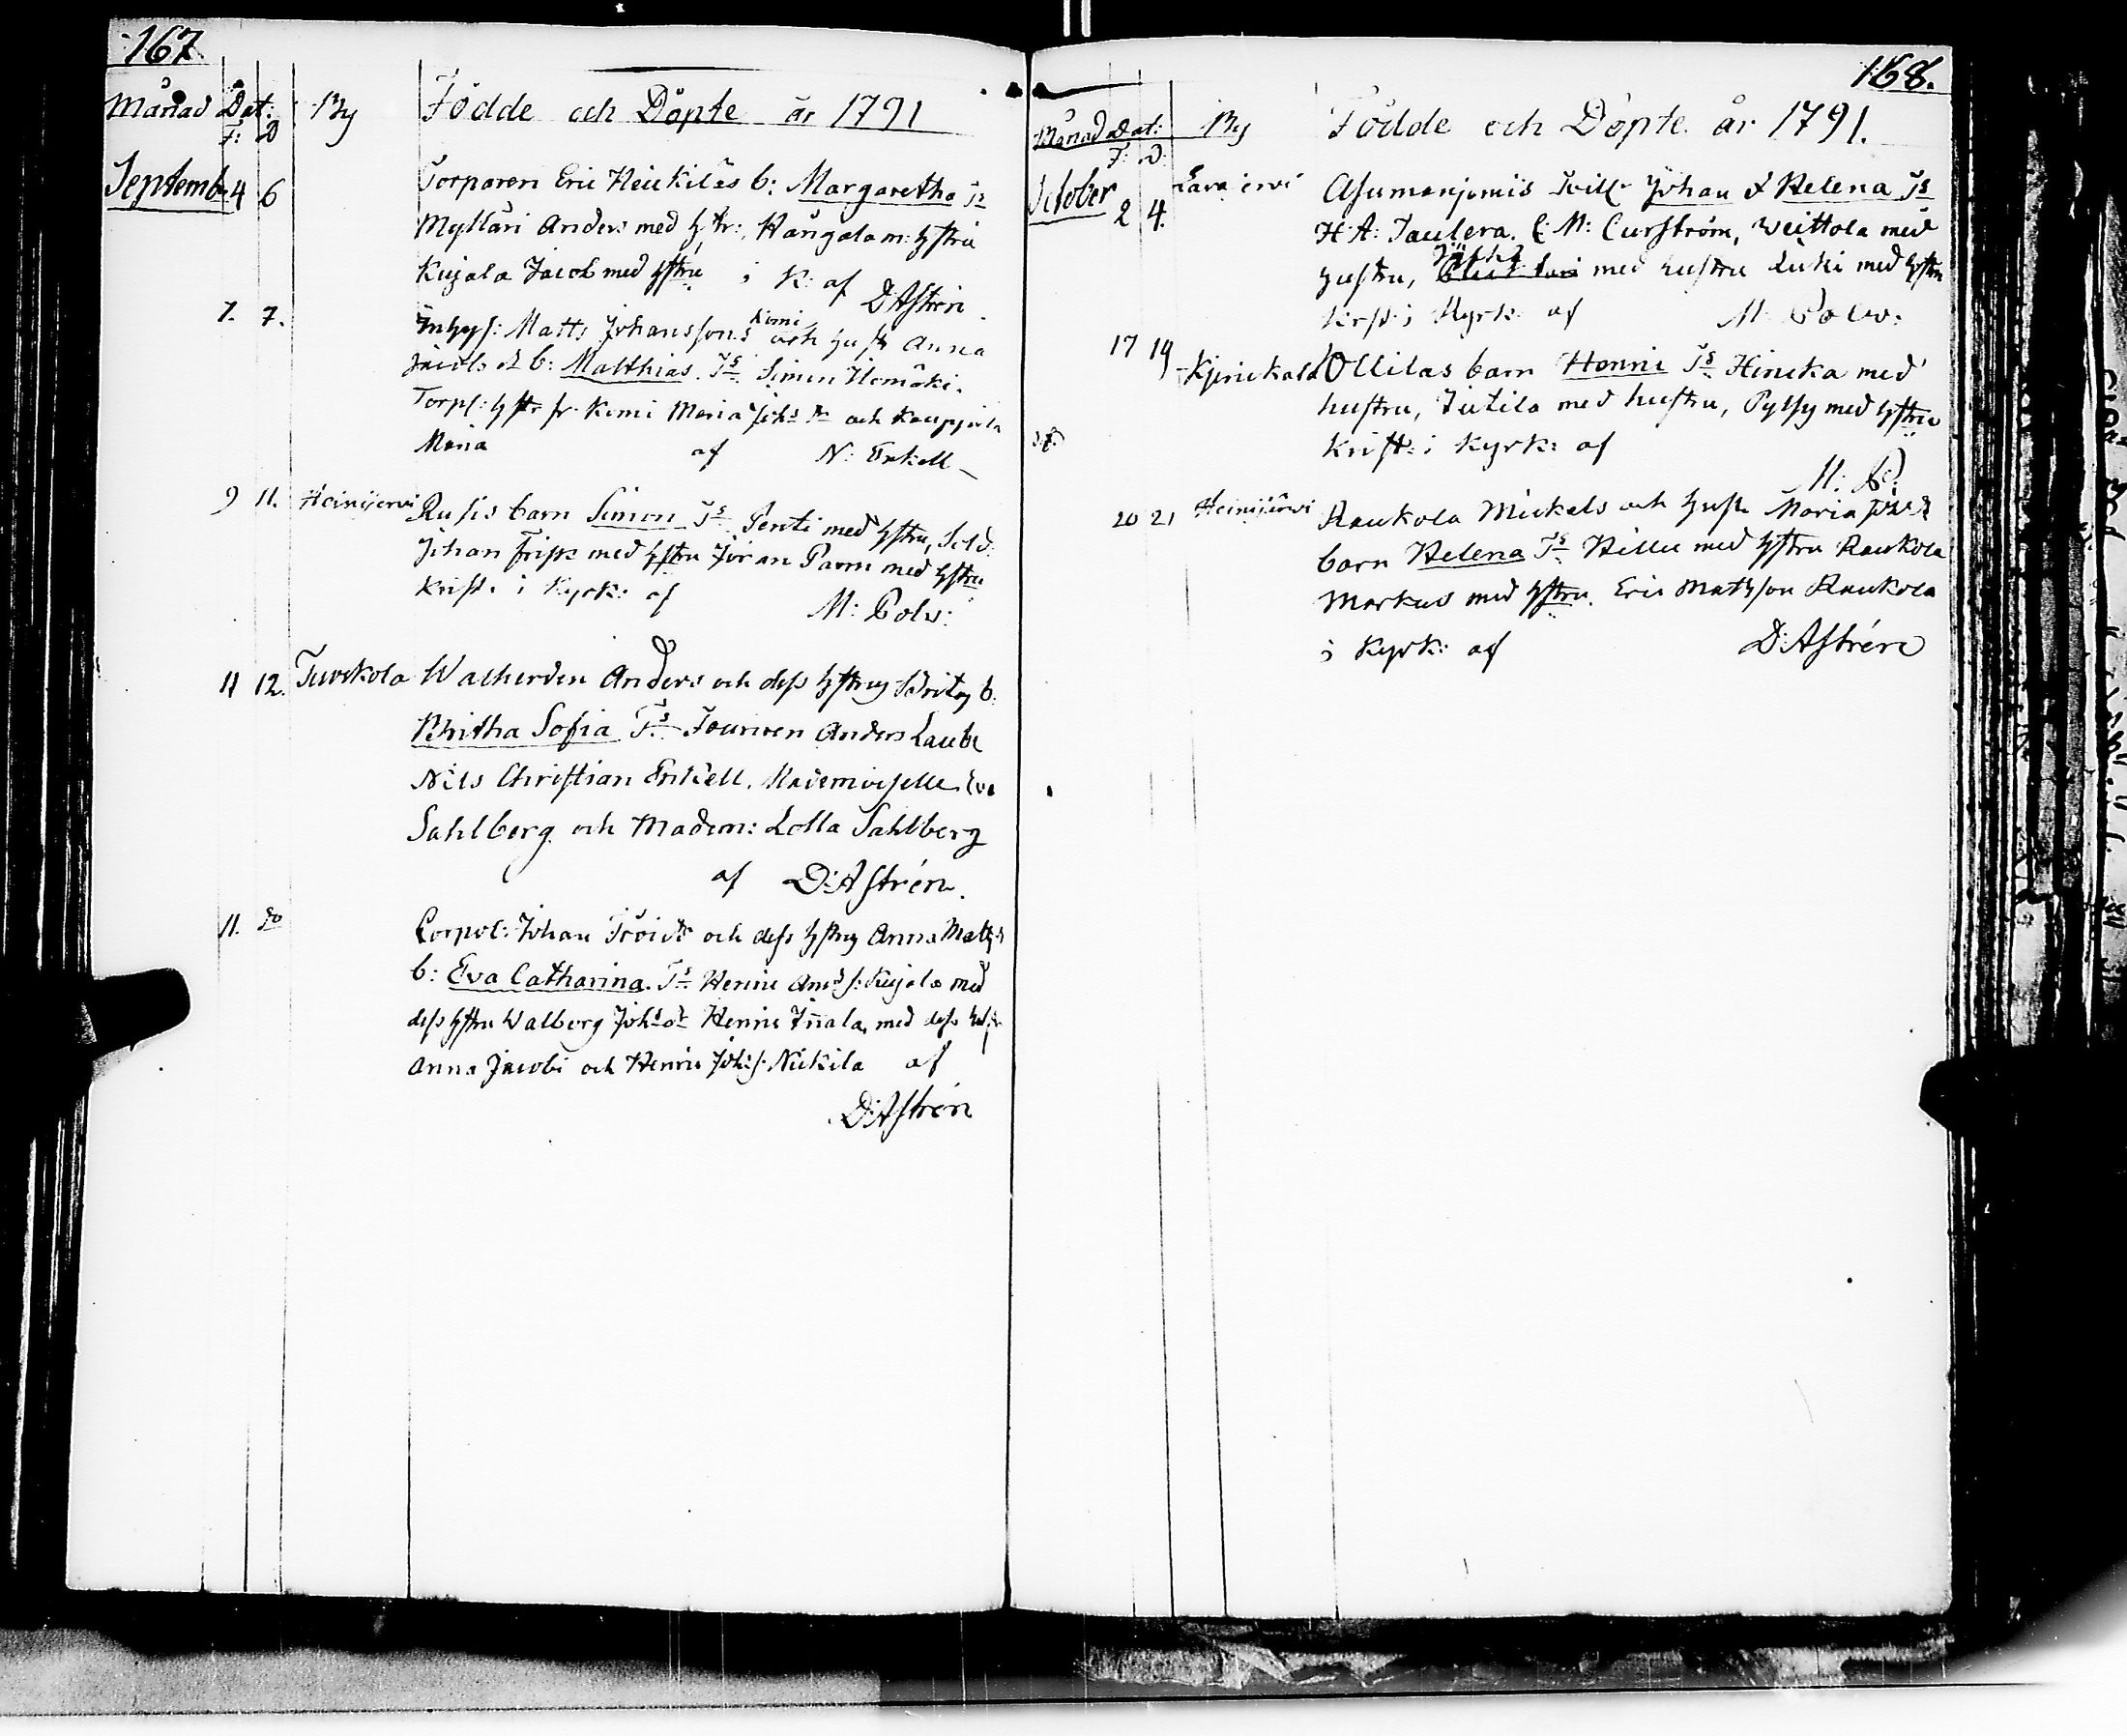 167
Månad Dat: By Födde och Döpte år 1791
F: D
Septemb 4 6 Torparen Eric Heickiläs b: Margaretha Ts
Mylläri Anders med hstr: Hångala m: hstru
Kujala Jacob med hstru i K: af D:Astrén
7. 7. Inhys: Matts Johanssons Kemi och hustr Anna
Jacobs d b: Matthias. Ts Simon
Torps: hstr fr. Kemi Maria Johs dr och Kauppila
Maria af N: Enkell
9 11. Heinijervi Rusis barn Simon Ts. Penti med hstru, Sold.
Johan Frisk med hstru Jöran med hstru
Krist. i Kyrk: af M: Polv:
11 12. Turckola Anders och dess hstrus Britas b.
Britha Sofia Ts. Anders Laube
Nils Christian Enkell. Mademoiselle Eva
Sahlberg och Madem: Lolla Sahlberg
af D:Astrén.
11. do Corpol: Johan och dess hstrus Anna Matts
b: Eva Catharina. Ts Henric And s: Kujala med
dess hstru Walborg Johs dr Henric med dess hust
Anna Jacobi och Henric Johs s: Nickila af
D:Astrén
168.
Månad Dat: By Födde och Döpte år 1791.
F: D:
October 2 4. Asumaniemis Johan & Helena Ts
H: A: C: M: Curström, Weittola med
hustru, med hustru Luki med hstru
Krist i Kyrk: af M Polv:
17 19 Ollilas barn Henric Ts Hineka med
hustru, Jutila med hustru, Pylsy med hstru
Krist: i Kyrk: af
M: P:
20 21 Heinijärvi Raukola Mickels och hustr Maria Johs d
barn Helena Ts Hillu med hstru Raukola
Markus med hstru. Eric Matsson Raukola
i Kyrk: af D:Astrén